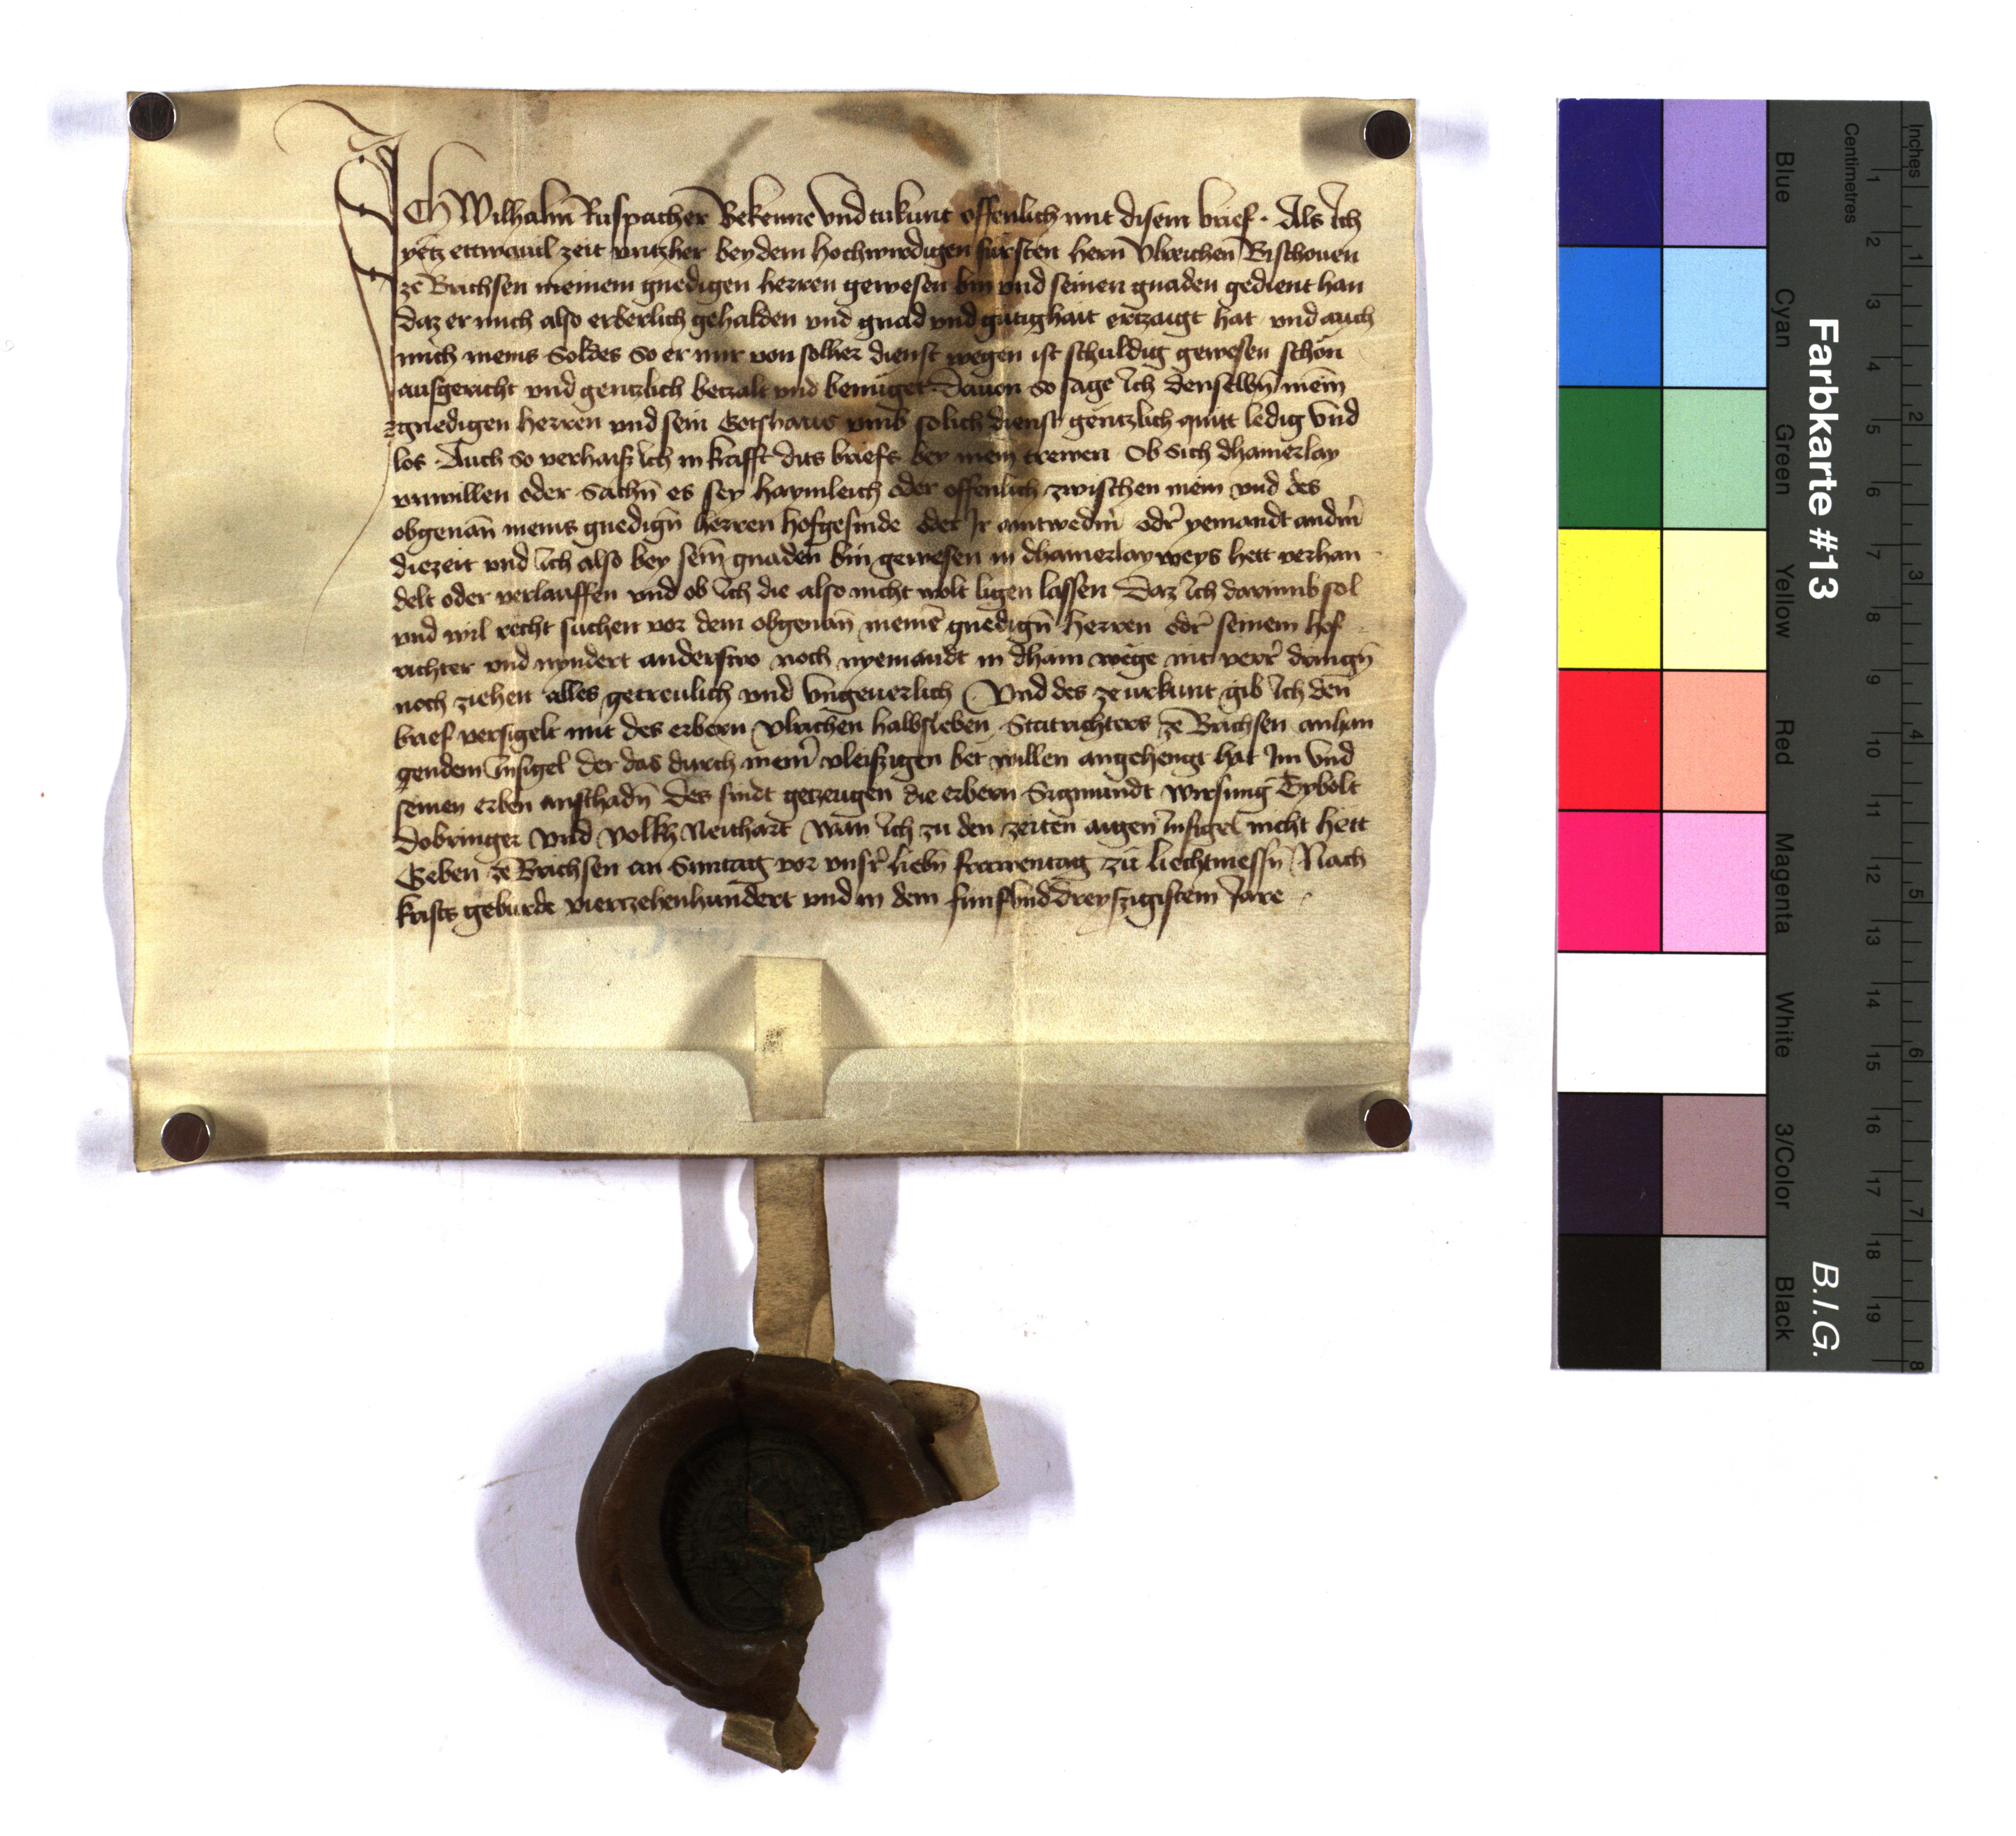 ICh Wilhalm Ruspacher Bekenne vnd tukunt offenlich mit disem brief · Als ich
yetz ettwauil zeit vntzher bey dem hochwirdigen fürsten hern Vlreichen Bischouen
ze Brichsen meinem gnedigen herren gewesen bin vnd seinen gnaden gedient han
daz er mich also erberlich gehalden vnd gnad vnd gütighait ertzaigt hat vnd auch
mich meins Soldes So er mir von solher dienst wegen ist schuldig gewesen schön
ausgericht vnd gentzlich betzalt vnd benüget Dauon so sage ich denselbn̄ mein̄
gnedigen herren vnd sein Gotshaus vmb solich dienst gentzlich quitt ledig vnd
los · Auch so verhaisz ich in krafft dits briefs bey mein trewen Ob sich dhainerlay
vnwillen oder Sachn̄ es sey haymleich oder offenlich zwischen mein vnd des
obgenan̄ meins gnedign̄ herren hofgesinde oder Ir antwedrm̄ odr̄ yemandt andrm̄
diezeit vnd ich also bey sein̄ gnaden bin gewesen in dhainerlay weys hett verhan
delt oder verlauffen vnd ob ich die also nicht wolt ligen lassen Daz ich darumb sol
vnd wil recht suchen vor dem obgenan̄ meinē gnedign̄ herren odr̄ seinem hof
richter vnd nyndert anderswo noch nyemandt in dhain wege nit verr̄ dringn̄
noch ziehen alles getreulich vnd vngeuerlich Vnd des ze vrkunt gib ich den
brief versigelt mit des erbern Vlrichen halbsleben Statrichters ze Brichsen anhan
gendem insigel der das durch mein̄ vleiszigen bet willen angehengt hat Im vnd
seinen erben anschadn̄ Des sindt getzeugen die erbern Sigmundt Wirsung Tybolt
Dobringer vnd Volkh Neithart wan ich zu den zeiten aigen insigel nicht hett
Geben ze Brichsen an Suntag vor vnsr̄ liebn̄ frawentag zu liechtmessn̄ Nach
krists geburde viertzehenhundert vnd in dem fünfvnddreyszigistem Jare
Farbkarte #13
B.I.G.
Inches
Centimetres
1 2 3 4 5 6 7 8
1 2 3 4 5 6 7 8 9 10 11 12 13 14 15 16 17 18 19
Blue
Cyan
Green
Yellow
Red
Magenta
White
3/Color
Black